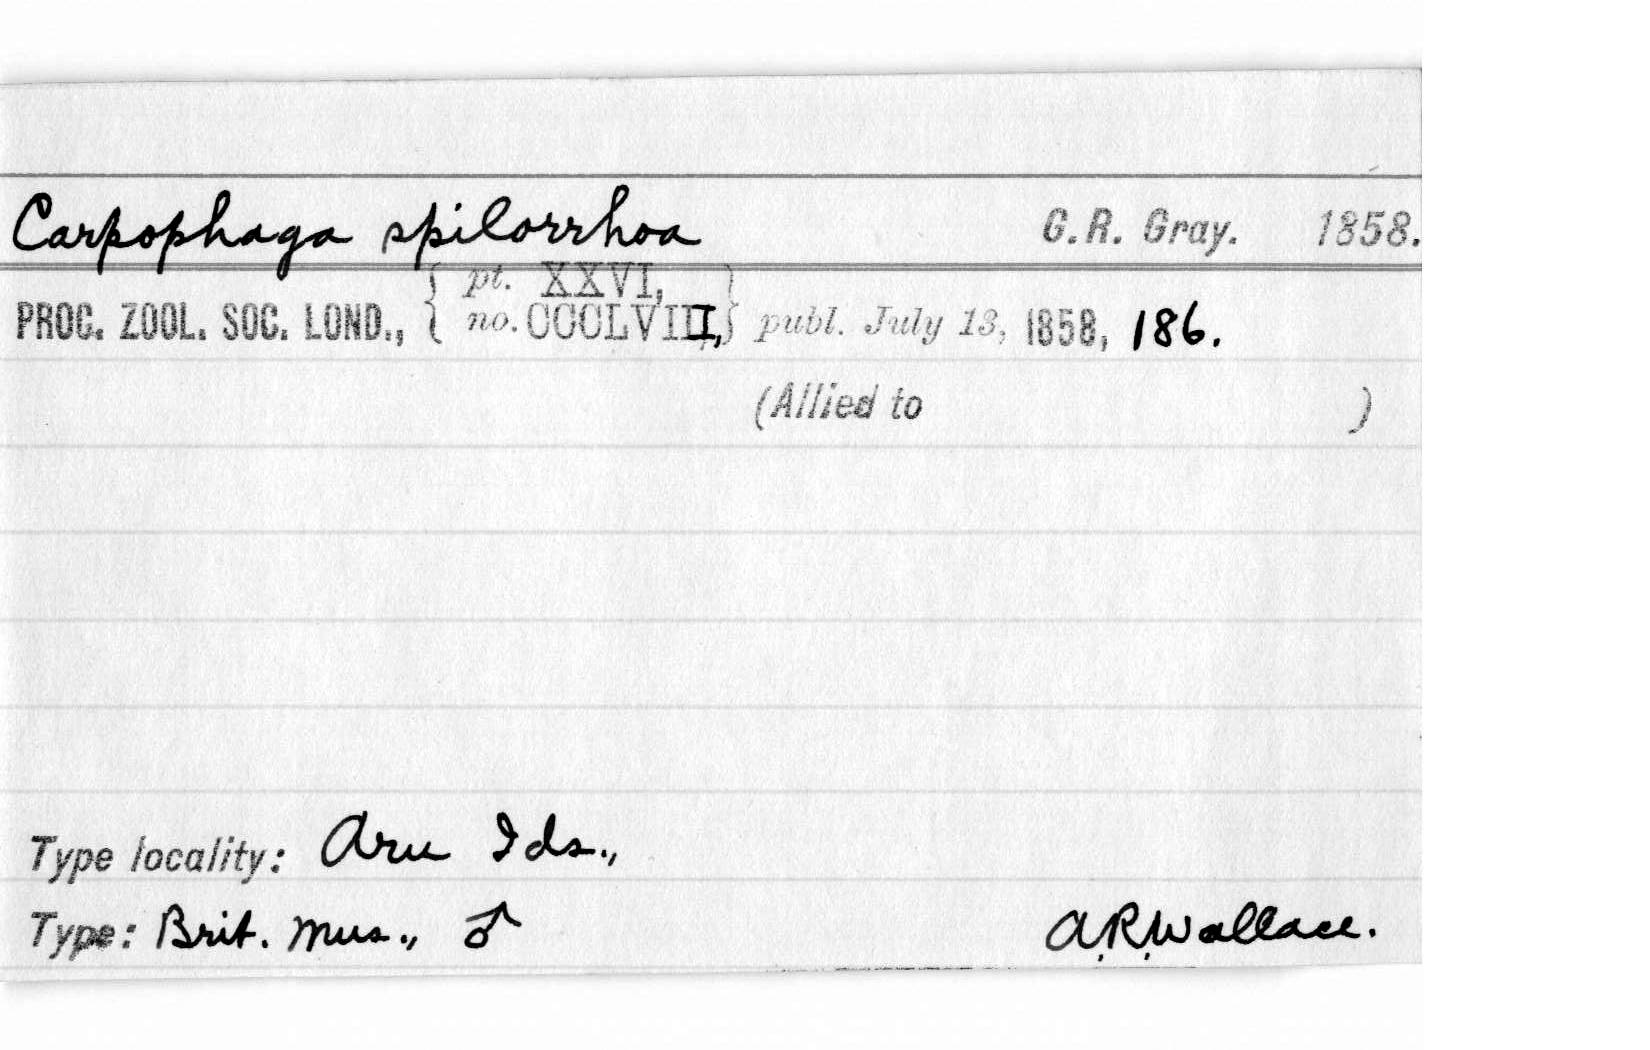 Carpophaga spilorrhoa G.R. Gray. 1858.
PROC. ZOOL. SOC. LOND., { pt. XXVI, no. CCCLVIII, } publ. July 13, 1858, 186.
(Allied to )
Type locality: Aru Ids.,
Type: Brit. Mus., ♂ A.R.Wallace.